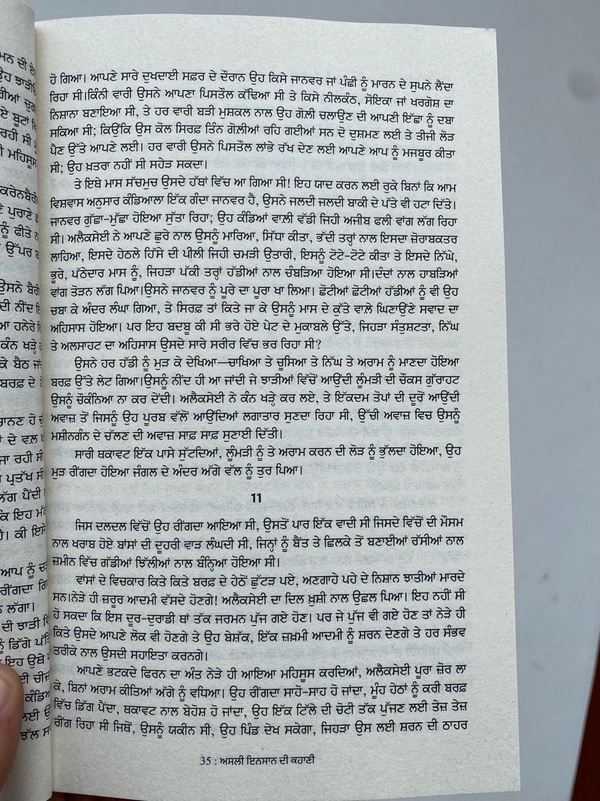 ਹੋ ਗਿਆ। ਆਪਣੇ ਸਾਰੇ ਦੁਖਦਾਈ ਸਫ਼ਰ ਦੇ ਦੌਰਾਨ ਉਹ ਕਿਸੇ ਜਾਨਵਰ ਜਾਂ ਪੰਛੀ ਨੂੰ ਮਾਰਨ ਦੇ ਸੁਪਨੇ ਲੈਂਦਾ
ਰਿਹਾ ਸੀ।ਕਿੰਨੀ ਵਾਰੀ ਉਸਨੇ ਆਪਣਾ ਪਿਸਤੌਲ ਕੱਢਿਆ ਸੀ ਤੇ ਕਿਸੇ ਨੀਲਕੰਠ, ਸੋਇਕਾ ਜਾਂ ਖਰਗੋਸ਼ ਦਾ
ਨਿਸ਼ਾਨਾ ਬਣਾਇਆ ਸੀ, ਤੇ ਹਰ ਵਾਰੀ ਬੜੀ ਮੁਸ਼ਕਲ ਨਾਲ ਉਹ ਗੋਲੀ ਚਲਾਉਣ ਦੀ ਆਪਣੀ ਇੱਛਾ ਨੂੰ ਦਬਾ
ਸਕਿਆ ਸੀ; ਕਿਉਂਕਿ ਉਸ ਕੋਲ ਸਿਰਫ਼ ਤਿੰਨ ਗੋਲੀਆਂ ਰਹਿ ਗਈਆਂ ਸਨ ਦੋ ਦੁਸ਼ਮਣ ਲਈ ਤੇ ਤੀਜੀ ਲੋੜ
ਪੈਣ ਉੱਤੇ ਆਪਣੇ ਲਈ। ਹਰ ਵਾਰੀ ਉਸਨੇ ਪਿਸਤੌਲ ਲਾਂਭੇ ਰੱਖ ਦੇਣ ਲਈ ਆਪਣੇ ਆਪ ਨੂੰ ਮਜਬੂਰ ਕੀਤਾ
ਸੀ; ਉਹ ਖ਼ਤਰਾ ਨਹੀਂ ਸੀ ਸਹੇੜ ਸਕਦਾ।
ਤੇ ਇਥੇ ਮਾਸ ਸੱਚਮੁਚ ਉਸਦੇ ਹੱਥਾਂ ਵਿੱਚ ਆ ਗਿਆ ਸੀ! ਇਹ ਯਾਦ ਕਰਨ ਲਈ ਰੁਕੇ ਬਿਨਾਂ ਕਿ ਆਮ
ਵਿਸ਼ਵਾਸ ਅਨੁਸਾਰ ਕੰਡਿਆਲਾ ਇੱਕ ਗੰਦਾ ਜਾਨਵਰ ਹੈ, ਉਸਨੇ ਜਲਦੀ ਜਲਦੀ ਬਾਕੀ ਦੇ ਪੱਤੇ ਵੀ ਹਟਾ ਦਿੱਤੇ।
ਜਾਨਵਰ ਗੁੱਛਾ-ਮੁੱਛਾ ਹੋਇਆ ਸੁੱਤਾ ਰਿਹਾ; ਉਹ ਕੰਡਿਆਂ ਵਾਲੀ ਵੱਡੀ ਜਿਹੀ ਅਜੀਬ ਫਲੀ ਵਾਂਗ ਲੱਗ ਰਿਹਾ
ਸੀ। ਅਲੈਕਸੇਈ ਨੇ ਆਪਣੇ ਛੁਰੇ ਨਾਲ ਉਸਨੂੰ ਮਾਰਿਆ, ਸਿੱਧਾ ਕੀਤਾ, ਭੱਦੀ ਤਰ੍ਹਾਂ ਨਾਲ ਇਸਦਾ ਜ਼ੋਰਾਬਕਤਰ
ਲਾਹਿਆ, ਇਸਦੇ ਹੇਠਲੇ ਹਿੱਸੇ ਦੀ ਪੀਲੀ ਜਿਹੀ ਚਮੜੀ ਉਤਾਰੀ, ਇਸਨੂੰ ਟੋਟੇ-ਟੋਟੇ ਕੀਤਾ ਤੇ ਇਸਦੇ ਨਿੱਘੇ,
ਭੂਰੇ, ਪੱਠੇਦਾਰ ਮਾਸ ਨੂੰ, ਜਿਹੜਾ ਪੱਕੀ ਤਰ੍ਹਾਂ ਹੱਡੀਆਂ ਨਾਲ ਚੰਬੜਿਆ ਹੋਇਆ ਸੀ।ਦੰਦਾਂ ਨਾਲ ਹਾਬੜਿਆਂ
ਵਾਂਗ ਤੋੜਨ ਲੱਗ ਪਿਆ।ਉਸਨੇ ਜਾਨਵਰ ਨੂੰ ਪੂਰੇ ਦਾ ਪੂਰਾ ਖਾ ਲਿਆ। ਛੋਟੀਆਂ ਛੋਟੀਆਂ ਹੱਡੀਆਂ ਨੂੰ ਵੀ ਉਹ
ਚਬਾ ਕੇ ਅੰਦਰ ਲੰਘਾ ਗਿਆ, ਤੇ ਸਿਰਫ਼ ਤਾਂ ਕਿਤੇ ਜਾ ਕੇ ਉਸਨੂੰ ਮਾਸ ਦੇ ਕੁੱਤੇ ਵਾਲੇ ਘਿਣਾਉਣੇ ਸਵਾਦ ਦਾ
ਅਹਿਸਾਸ ਹੋਇਆ। ਪਰ ਇਹ ਬਦਬੂ ਕੀ ਸੀ ਭਰੇ ਹੋਏ ਪੇਟ ਦੇ ਮੁਕਾਬਲੇ ਉੱਤੇ, ਜਿਹੜਾ ਸੰਤੁਸ਼ਟਤਾ, ਨਿੱਘ
ਤੇ ਅਲਸਾਹਟ ਦਾ ਅਹਿਸਾਸ ਉਸਦੇ ਸਾਰੇ ਸਰੀਰ ਵਿੱਚ ਭਰ ਰਿਹਾ ਸੀ?
ਉਸਨੇ ਹਰ ਹੱਡੀ ਨੂੰ ਮੁੜ ਕੇ ਦੇਖਿਆ—ਚਾਖਿਆ ਤੇ ਚੂਸਿਆ ਤੇ ਨਿੱਘ ਤੇ ਅਰਾਮ ਨੂੰ ਮਾਣਦਾ ਹੋਇਆ
ਬਰਫ਼ ਉੱਤੇ ਲੇਟ ਗਿਆ।ਉਸਨੂੰ ਨੀਂਦ ਹੀ ਆ ਜਾਂਦੀ ਜੇ ਝਾੜੀਆਂ ਵਿੱਚੋਂ ਆਉਂਦੀ ਲੂੰਮੜੀ ਦੀ ਚੌਕਸ ਗੁੱਰਾਹਟ
ਉਸਨੂੰ ਚੌਕੰਨਿਆ ਨਾ ਕਰ ਦੇਂਦੀ। ਅਲੈਕਸੇਈ ਨੇ ਕੰਨ ਖੜ੍ਹੇ ਕਰ ਲਏ, ਤੇ ਇੱਕਦਮ ਤੋਪਾਂ ਦੀ ਦੂਰੋਂ ਆਉਂਦੀ
ਅਵਾਜ਼ ਤੋਂ ਜਿਸਨੂੰ ਉਹ ਪੂਰਬ ਵੱਲੋਂ ਆਉਂਦਿਆਂ ਲਗਾਤਾਰ ਸੁਣਦਾ ਰਿਹਾ ਸੀ, ਉੱਚੀ ਅਵਾਜ਼ ਵਿਚ ਉਸਨੂੰ
ਮਸ਼ੀਨਗੰਨ ਦੇ ਚੱਲਣ ਦੀ ਅਵਾਜ਼ ਸਾਫ਼ ਸਾਫ਼ ਸੁਣਾਈ ਦਿੱਤੀ।
ਸਾਰੀ ਥਕਾਵਟ ਇੱਕ ਪਾਸੇ ਸੁੱਟਦਿਆਂ, ਲੂੰਮੜੀ ਨੂੰ ਤੇ ਅਰਾਮ ਕਰਨ ਦੀ ਲੋੜ ਨੂੰ ਭੁੱਲਦਾ ਹੋਇਆ, ਉਹ
ਮੁੜ ਰੀਂਗਦਾ ਹੋਇਆ ਜੰਗਲ ਦੇ ਅੰਦਰ ਅੱਗੇ ਵੱਲ ਨੂੰ ਤੁਰ ਪਿਆ।
11
ਜਿਸ ਦਲਦਲ ਵਿੱਚੋਂ ਉਹ ਰੀਂਗਦਾ ਆਇਆ ਸੀ, ਉਸਤੋਂ ਪਾਰ ਇੱਕ ਵਾਦੀ ਸੀ ਜਿਸਦੇ ਵਿੱਚੋਂ ਦੀ ਮੌਸਮ
ਨਾਲ ਖਰਾਬ ਹੋਏ ਬਾਂਸਾਂ ਦੀ ਦੂਹਰੀ ਵਾੜ ਲੰਘਦੀ ਸੀ, ਜਿਨ੍ਹਾਂ ਨੂੰ ਬੈਂਤ ਤੇ ਛਿਲਕੇ ਤੋਂ ਬਣਾਈਆਂ ਰੱਸੀਆਂ ਨਾਲ
ਜ਼ਮੀਨ ਵਿੱਚ ਗੱਡੀਆਂ ਝਿੱਲੀਆਂ ਨਾਲ ਬੰਨ੍ਹਿਆ ਹੋਇਆ ਸੀ।
ਵਾਂਸਾਂ ਦੇ ਵਿਚਕਾਰ ਕਿਤੇ ਕਿਤੇ ਬਰਫ਼ ਦੇ ਹੇਠੋਂ ਛੁੱਟੜ ਪਏ, ਅਣਗਾਹੇ ਪਹੇ ਦੇ ਨਿਸ਼ਾਨ ਝਾਤੀਆਂ ਮਾਰਦੇ
ਸਨ।ਨੇੜੇ ਹੀ ਜ਼ਰੂਰ ਆਦਮੀ ਵੱਸਦੇ ਹੋਣਗੇ! ਅਲੈਕਸੇਈ ਦਾ ਦਿਲ ਖ਼ੁਸ਼ੀ ਨਾਲ ਉਛਲ ਪਿਆ। ਇਹ ਨਹੀਂ ਸੀ
ਹੋ ਸਕਦਾ ਕਿ ਇਸ ਦੂਰ-ਦੁਰਾਡੀ ਥਾਂ ਤੱਕ ਜਰਮਨ ਪੁੱਜ ਗਏ ਹੋਣ। ਪਰ ਜੇ ਪੁੱਜ ਵੀ ਗਏ ਹੋਣ ਤਾਂ ਨੇੜੇ ਹੀ
ਕਿਤੇ ਉਸਦੇ ਆਪਣੇ ਲੋਕ ਵੀ ਹੋਣਗੇ ਤੇ ਉਹ ਬੇਸ਼ੱਕ, ਇੱਕ ਜ਼ਖ਼ਮੀ ਆਦਮੀ ਨੂੰ ਸ਼ਰਨ ਦੇਣਗੇ ਤੇ ਹਰ ਸੰਭਵ
ਤਰੀਕੇ ਨਾਲ ਉਸਦੀ ਸਹਾਇਤਾ ਕਰਨਗੇ।
ਆਪਣੇ ਭਟਕਦੇ ਫਿਰਨ ਦਾ ਅੰਤ ਨੇੜੇ ਹੀ ਆਇਆ ਮਹਿਸੂਸ ਕਰਦਿਆਂ, ਅਲੈਕਸੇਈ ਪੂਰਾ ਜ਼ੋਰ ਲਾ
ਕੇ, ਬਿਨਾਂ ਅਰਾਮ ਕੀਤਿਆਂ ਅੱਗੇ ਨੂੰ ਵਧਿਆ। ਉਹ ਰੀਂਗਦਾ ਸਾਹੋ-ਸਾਹ ਹੋ ਜਾਂਦਾ, ਮੂੰਹ ਹੇਠਾਂ ਨੂੰ ਕਰੀ ਬਰਫ਼
ਵਿੱਚ ਡਿੱਗ ਪੈਂਦਾ, ਥਕਾਵਟ ਨਾਲ ਬੇਹੋਸ਼ ਹੋ ਜਾਂਦਾ, ਉਹ ਇੱਕ ਟਿੱਲੇ ਦੀ ਚੋਟੀ ਤੱਕ ਪੁੱਜਣ ਲਈ ਤੇਜ਼ ਤੇਜ਼
ਰੀਂਗ ਰਿਹਾ ਸੀ ਜਿਥੋਂ, ਉਸਨੂੰ ਯਕੀਨ ਸੀ, ਉਹ ਪਿੰਡ ਦੇਖ ਸਕੇਗਾ, ਜਿਹੜਾ ਉਸ ਲਈ ਸ਼ਰਨ ਦੀ ਠਾਹਰ
35 : ਅਸਲੀ ਇਨਸਾਨ ਦੀ ਕਹਾਣੀ